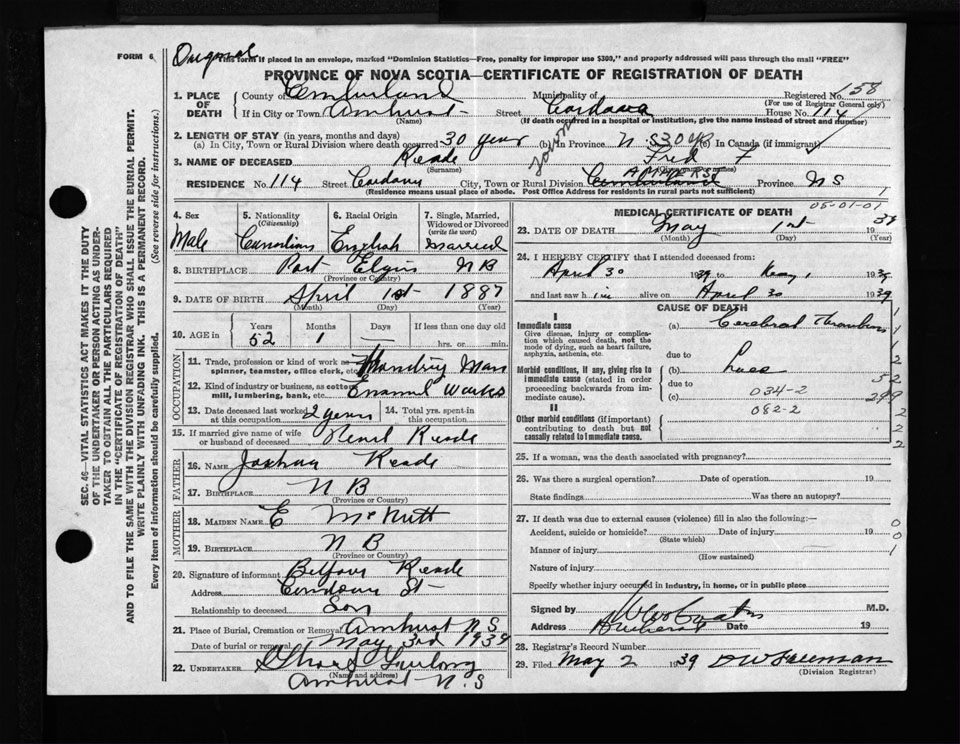 FORM 6
Original
This form if placed in an envelope, marked "Dominion Statistics—Free, penalty for improper use $300," and properly addressed will pass through the mail "FREE"
PROVINCE OF NOVA SCOTIA—CERTIFICATE OF REGISTRATION OF DEATH
SEC. 46—VITAL STATISTICS ACT MAKES IT THE DUTY
OF THE UNDERTAKER OR PERSON ACTING AS UNDER-
TAKER TO OBTAIN ALL THE PARTICULARS REQUIRED
IN THE "CERTIFICATE OF REGISTRATION OF DEATH"
AND TO FILE THE SAME WITH THE DIVISION REGISTRAR WHO SHALL ISSUE THE BURIAL PERMIT.
WRITE PLAINLY WITH UNFADING INK. THIS IS A PERMANENT RECORD.
Every item of information should be carefully supplied. (See reverse side for instructions.)
1. PLACE OF DEATH
County of Cumberland Municipality of Registered No. 158
(For use of Registrar General only)
If in City or Town Amherst Street House No. 114
(Name) (If death occurred in a hospital or institution, give the name instead of street and number)
2. LENGTH OF STAY (in years, months and days)
(a) In City, Town or Rural Division where death occurred 30 year (b) In Province N S 30 yr (c) In Canada (if immigrant)
3. NAME OF DECEASED Reade Fred F
(Surname)
RESIDENCE No. 114 Street City, Town or Rural Division AMHERST Cumberland Province N S
(Residence means usual place of abode. Post Office Address for residents in rural parts not sufficient)
4. Sex Male
5. Nationality (Citizenship) Canadian
6. Racial Origin English
7. Single, Married, Widowed or Divorced (write the word) Married
8. BIRTHPLACE Port Elgin N B
(Province or Country)
9. DATE OF BIRTH April 1st 1887
(Month) (Day) (Year)
10. AGE in Years 52 Months 1 Days — If less than one day old hrs. or min.
OCCUPATION
11. Trade, profession or kind of work as spinner, teamster, office clerk, etc. Man
12. Kind of industry or business, as cotton mill, lumbering, bank, etc. Enamel Works
13. Date deceased last worked at this occupation 2 years 14. Total yrs. spent in this occupation
15. If married give name of wife or husband of deceased Reade
FATHER
16. NAME Joshua Reade
17. BIRTHPLACE N B
(Province or Country)
MOTHER
18. MAIDEN NAME E McNutt
19. BIRTHPLACE N B
(Province or Country)
20. Signature of informant Balfour Reade
Address St
Relationship to deceased Son
21. Place of Burial, Cremation or Removal Amherst N S
Date of burial or removal May 3rd 1939
22. UNDERTAKER Furlong
(Name and address)
Amherst N.S
MEDICAL CERTIFICATE OF DEATH
05-01-01
23. DATE OF DEATH May 1st 1939
(Month) (Day) (Year)
24. I HEREBY CERTIFY that I attended deceased from:
April 30 1939 to May 1 1939
and last saw him alive on April 30 1939
CAUSE OF DEATH
I
Immediate cause
Give disease, injury or complication which caused death, not the mode of dying, such as heart failure, asphyxia, asthenia, etc.
(a) Cerebral Thrombosis
due to
Morbid conditions, if any, giving rise to immediate cause (stated in order proceeding backwards from immediate cause).
(b) Lues
due to
(c) 034-2
II
Other morbid conditions (if important) contributing to death but not causally related to immediate cause.
082-2
25. If a woman, was the death associated with pregnancy?
26. Was there a surgical operation? Date of operation 19
State findings Was there an autopsy?
27. If death was due to external causes (violence) fill in also the following:—
Accident, suicide or homicide? Date of injury 19
(State which)
Manner of injury
(How sustained)
Nature of injury
Specify whether injury occurred in industry, in home, or in public place
Signed by M.D.
Address Amherst Date 19
28. Registrar's Record Number
29. Filed May 2 1939 D W Freeman
(Division Registrar)